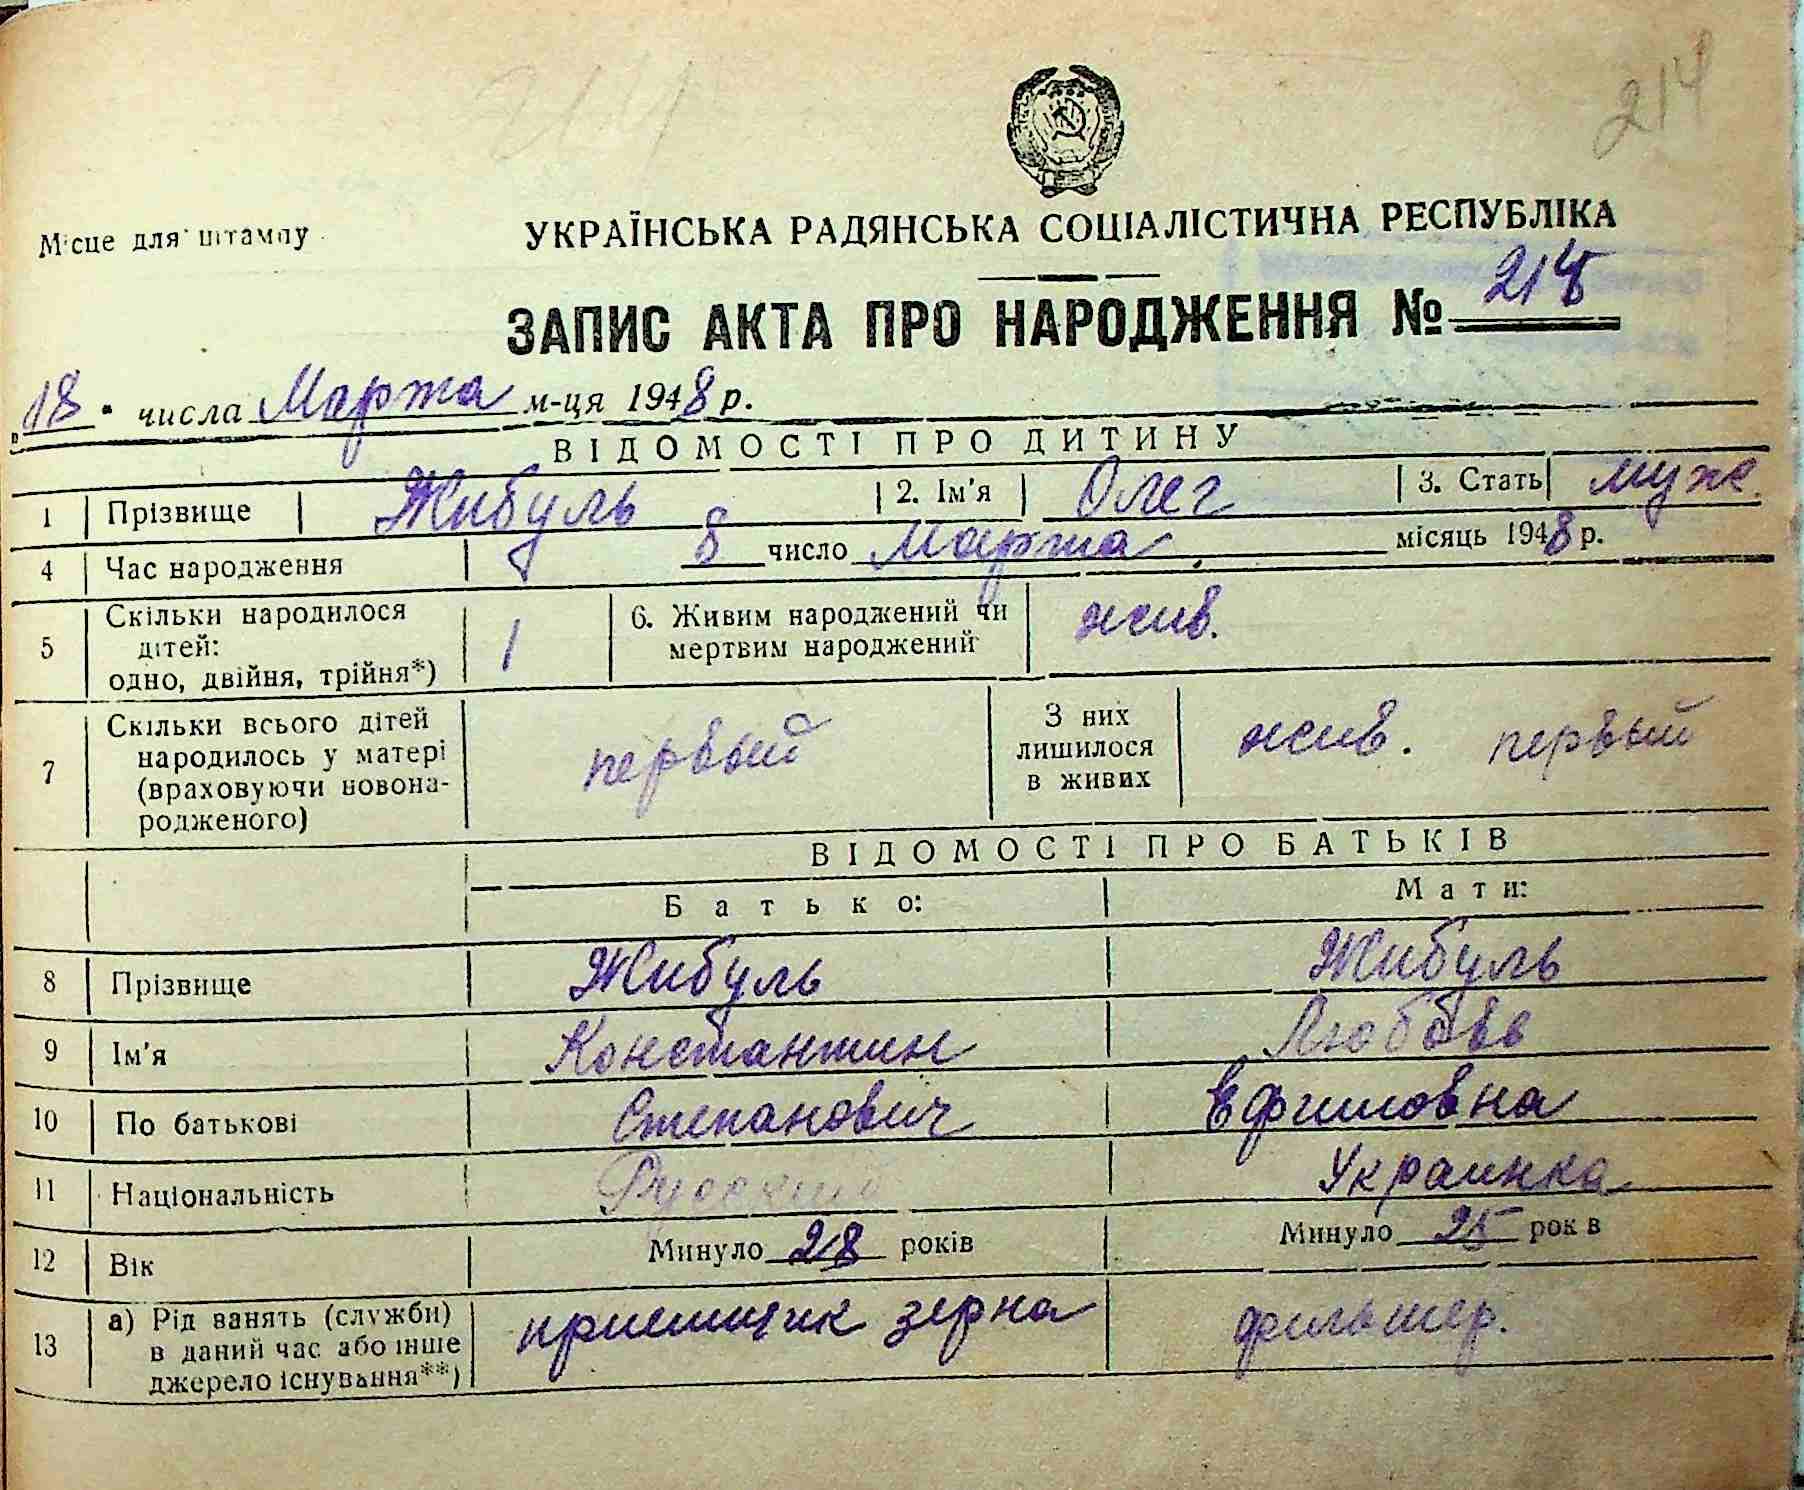 214
214
Місце для штампу
УКРАЇНСЬКА РАДЯНСЬКА СОЦІАЛІСТИЧНА РЕСПУБЛІКА
ЗАПИС АКТА ПРО НАРОДЖЕННЯ № 214
„18" числа Марта м-ця 1948 р.
ВІДОМОСТІ ПРО ДИТИНУ
1 Прізвище Жибуль 2. Ім'я Олег 3. Стать муж.
4 Час народження 8 число Марта місяць 1948 р.
5 Скільки народилося дітей: одно, двійня, трійня*) 1 6. Живим народжений чи мертвим народжений жив.
7 Скільки всього дітей народилось у матері (враховуючи новонародженого) первый З них лишилося в живих жив. первый
ВІДОМОСТІ ПРО БАТЬКІВ
Батько: Мати:
8 Прізвище Жибуль Жибуль
9 Ім'я Константин Любовь
10 По батькові Степанович Ефимовна
11 Національність Русский Украинка
12 Вік Минуло 28 років Минуло 25 рок в
13 а) Рід занять (служби) в даний час або інше джерело існування**) приемщик зерна